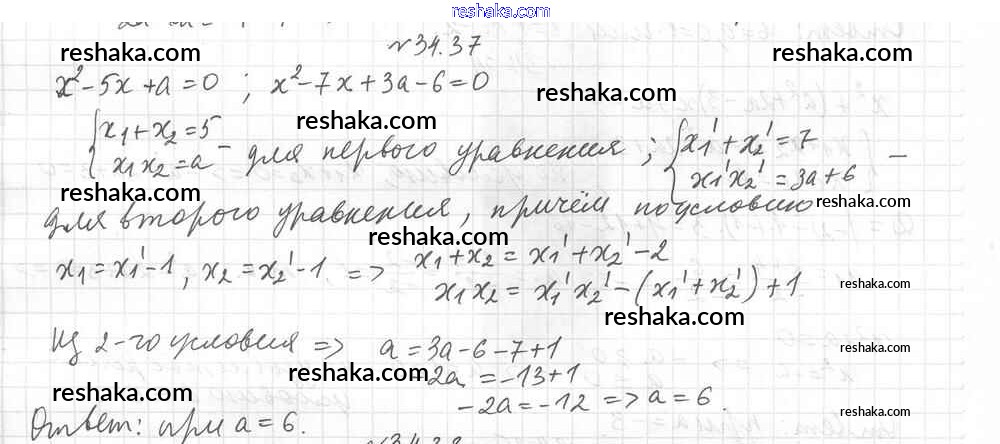 www.reshaka.com
№34.37
reshaka.com reshaka.com
x²-5x+a=0 ; x²-7x+3a-6=0
reshaka.com
reshaka.com
{x₁+x₂=5
x₁x₂=a - для первого уравнения ; {x₁'+x₂'=7
x₁'x₂'=3a+6 —
reshaka.com
reshaka.com
для второго уравнения, причём по условию
reshaka.com
x₁=x₁'-1, x₂=x₂'-1 => x₁+x₂=x₁'+x₂'-2
x₁x₂=x₁'x₂'-(x₁'+x₂')+1
reshaka.com
reshaka.com
Из 2-го условия => a=3a-6-7+1
reshaka.com
reshaka.com
-2a=-13+1
reshaka.com
-2a=-12 => a=6.
reshaka.com
Ответ: при a=6.